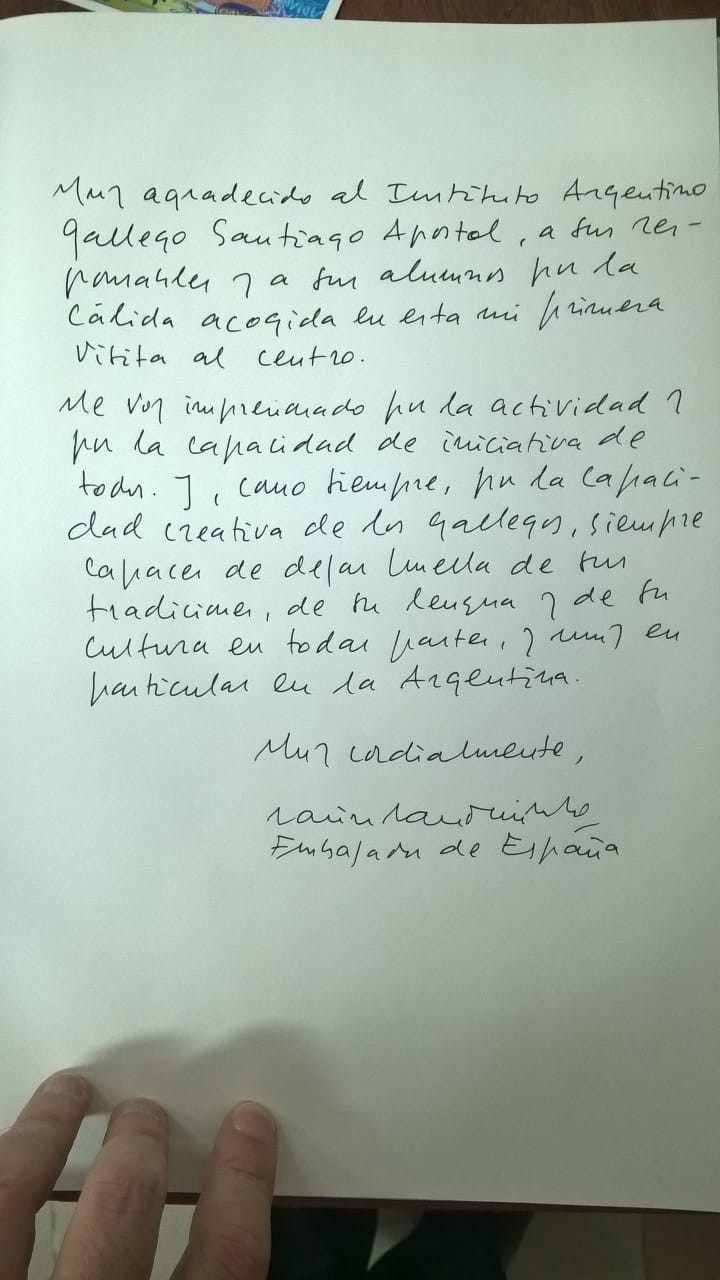 Muy agradecido al Instituto Argentino
Gallego Santiago Apostol, a sus res-
ponsables y a sus alumnos por la
cálida acogida en esta mi primera
visita al centro.
Me voy impresionado por la actividad y
por la capacidad de iniciativa de
todos. Y, como siempre, por la capaci-
dad creativa de los gallegos, siempre
capaces de dejar huella de sus
tradiciones, de su lengua y de su
cultura en todas partes, y muy en
particular en la Argentina.
Muy cordialmente,
Embajador de España